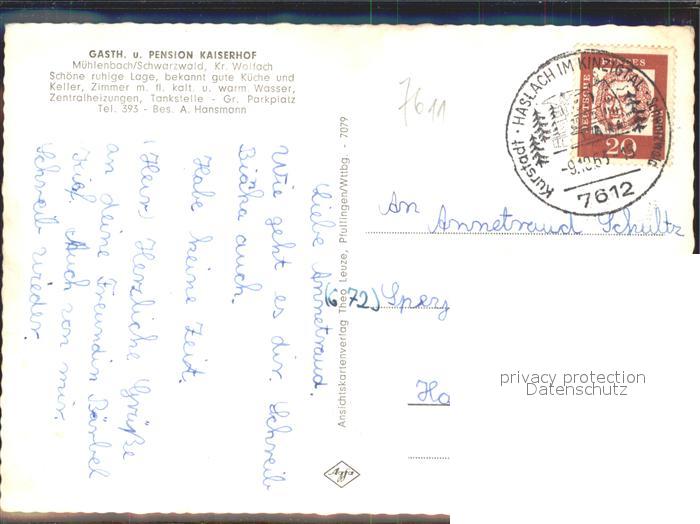 GASTH. u. PENSION KAISERHOF
Mühlenbach/Schwarzwald, Kr. Wolfach
Schöne ruhige Lage, bekannt gute Küche und
Keller, Zimmer m. fl. kalt. u. warm. Wasser,
Zentralheizungen, Tankstelle - Gr. Parkplatz
Tel. 393 - Bes. A. Hansmann
7611
Kurstadt · HASLACH IM KINZIGTAL · SCHWARZWALD
-9.10.63
7612
DEUTSCHE BUNDESPOST
20
Liebe Annetraud.
Wie geht es dir. Schreib
Biäka auch.
Habe keine Zeit.
(Hier) Herzliche Grüße
an deine Freundin Bärbel
Auch von mir.
Schreib wieder.
Ansichtskartenverlag Theo Leuze, Pfullingen/Wttbg. - 7079
An
Annetraud Schultz
(672) Speyer
Ha
privacy protection
Datenschutz